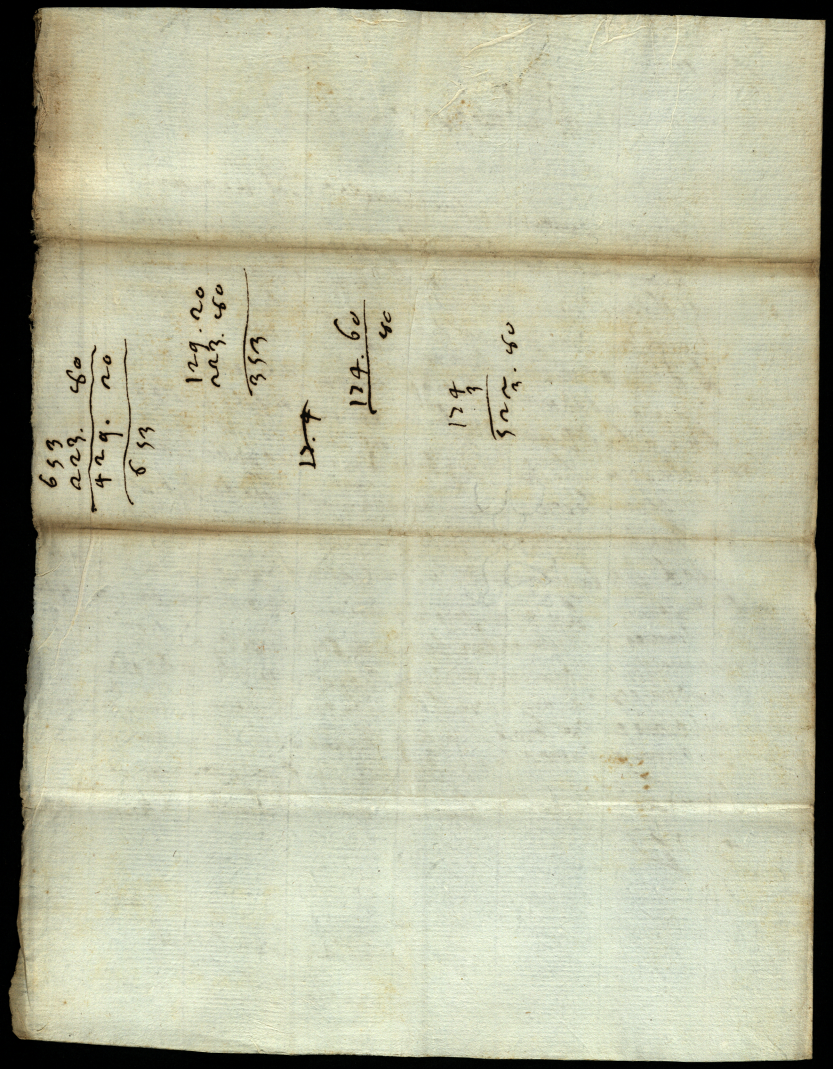 653
223. 80
429. 20
653
129. 20
223. 80
353
17.4
174. 60
80
174
3
5223. 80